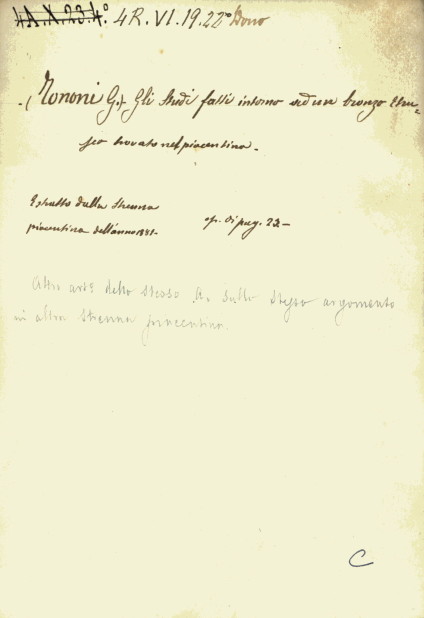 4A.X.23.4° 4R.VI.19.22° Dono
(Tononi G.) Gli Studi fatti intorno ad un bronzo Etru-
sco trovato nel piacentino.
Estratto dalla Strenna
piacentina dell'anno 1881. op. di pag. 23.
Altro art° dello stesso A. sullo stesso argomento
in altra Strenna piacentina.
C